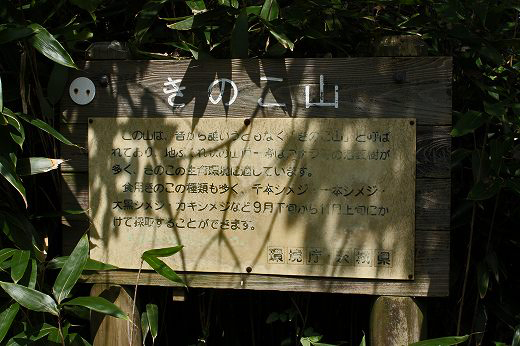 きのこ山
この山は、昔から誰いうともなく「きのこ山」と呼ば
れており、
多く、きのこの生育環境に適しています。
食用きのこの種類も多く、千本シメジ・一本シメジ・
大黒シメジ・カキシメジなど9月下旬から11月上旬にか
けて採取することができます。
環境庁・茨城県